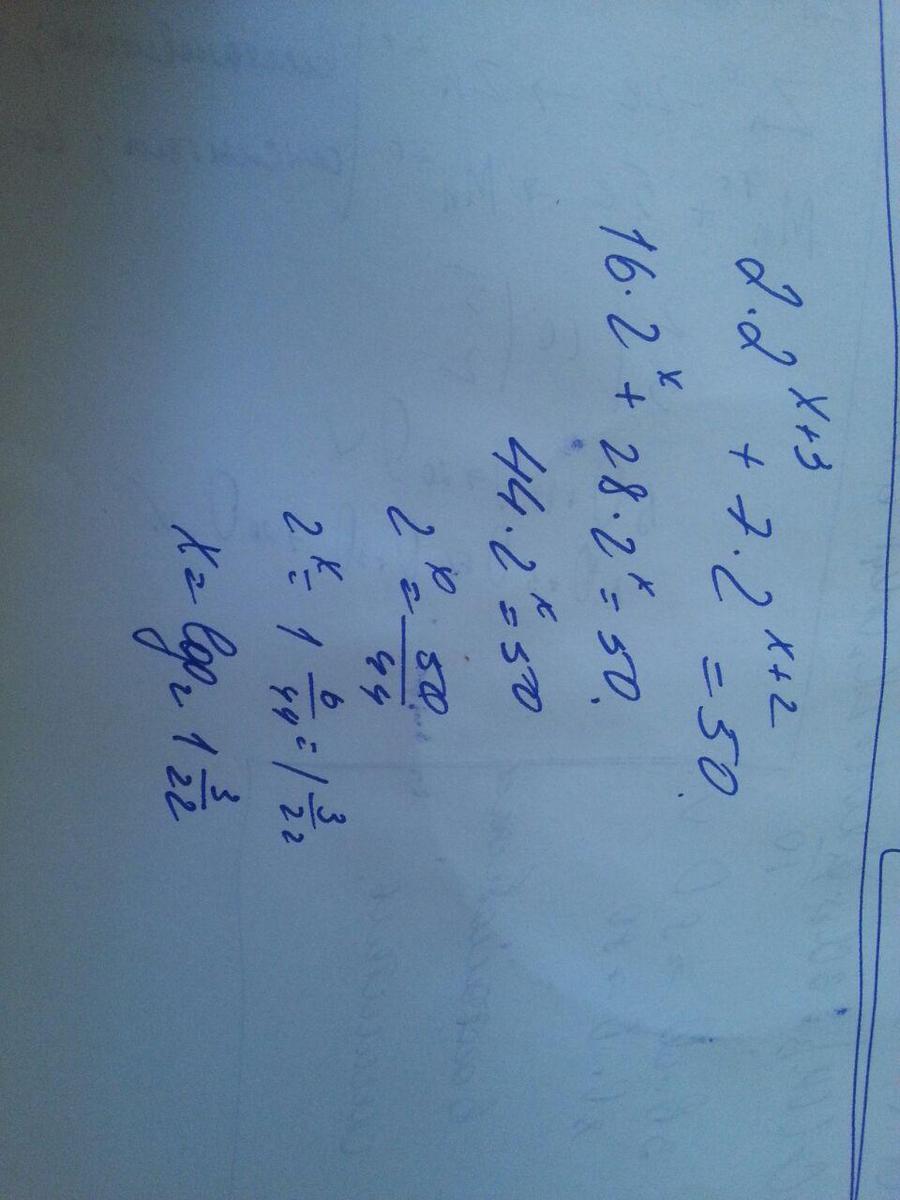 2·2^{x+3} + 7·2^{x+2} = 50
16·2^x + 28·2^x = 50
44·2^x = 50
2^x = 50/44
2^x = 1 6/44 = 1 3/22
x = log₂ 1 3/22